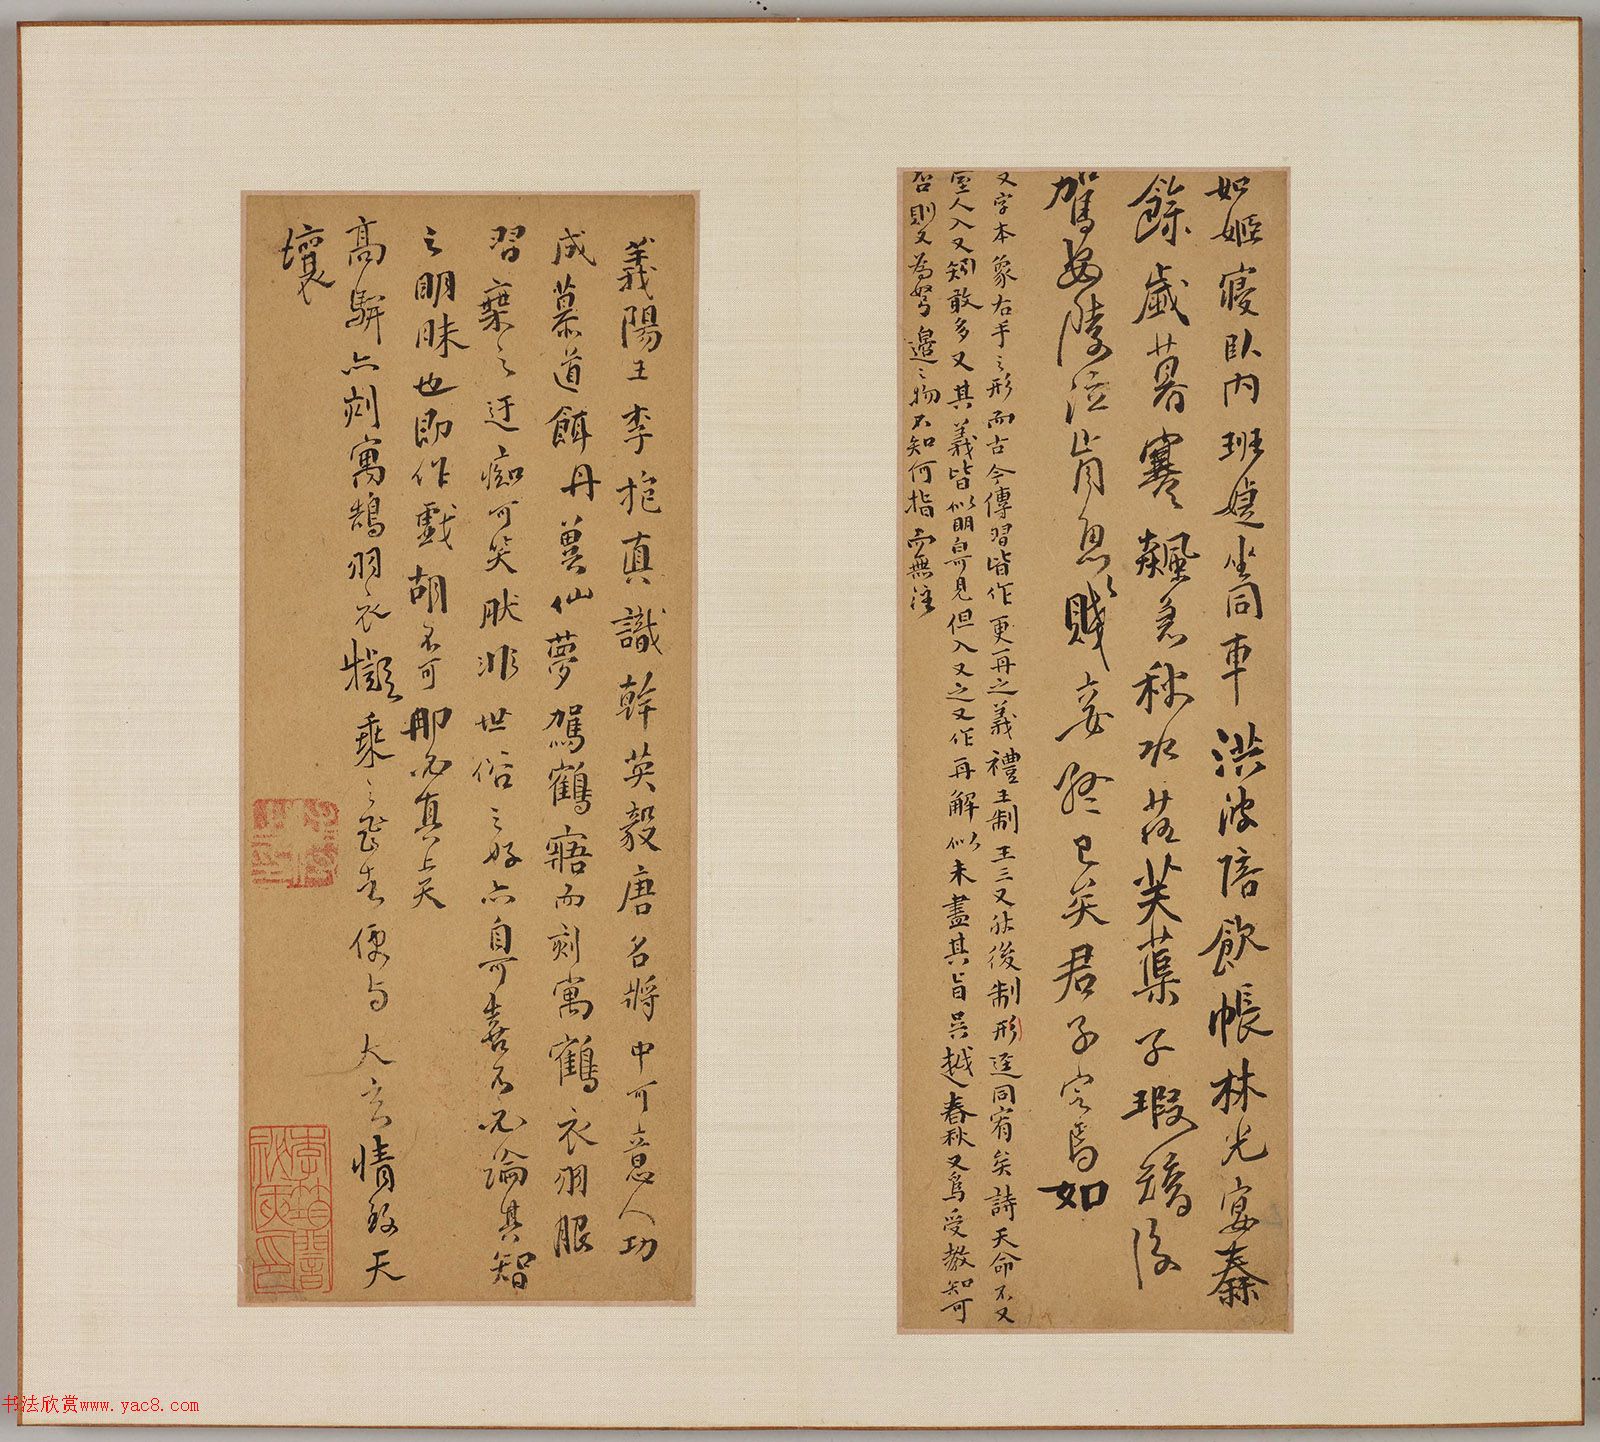 如姬寢卧内班婕坐同車洪波陪飲帳林光宴秦
餘歲暮寒飆急秋水落芙蕖子瑕矯後
駕安陵泣前魚賤妾終已矣君子定焉如
又字本象右手之形而古今傳習皆作更再之義禮王制王三又然後制形迳同宥矣詩天命不又
室人入又矧敢多又其義皆似明白可見但入又之又作再解似未盡其旨吳越春秋又為受教知可
否則又為弩邊之物不知何指而無注
義陽王李抱真識幹英毅唐名將中可意人功
成慕道餌丹冀仙夢駕鶴寤而刻寓鶴衣羽服
習乘之迂痴可笑然非世俗之好亦自可喜不必論其智
之明昧也即作戲胡不可那必真上天
高駢亦刻寓鵠羽衣擬乘之飛去便与大言情致天
壤
书法欣赏www.yac8.com